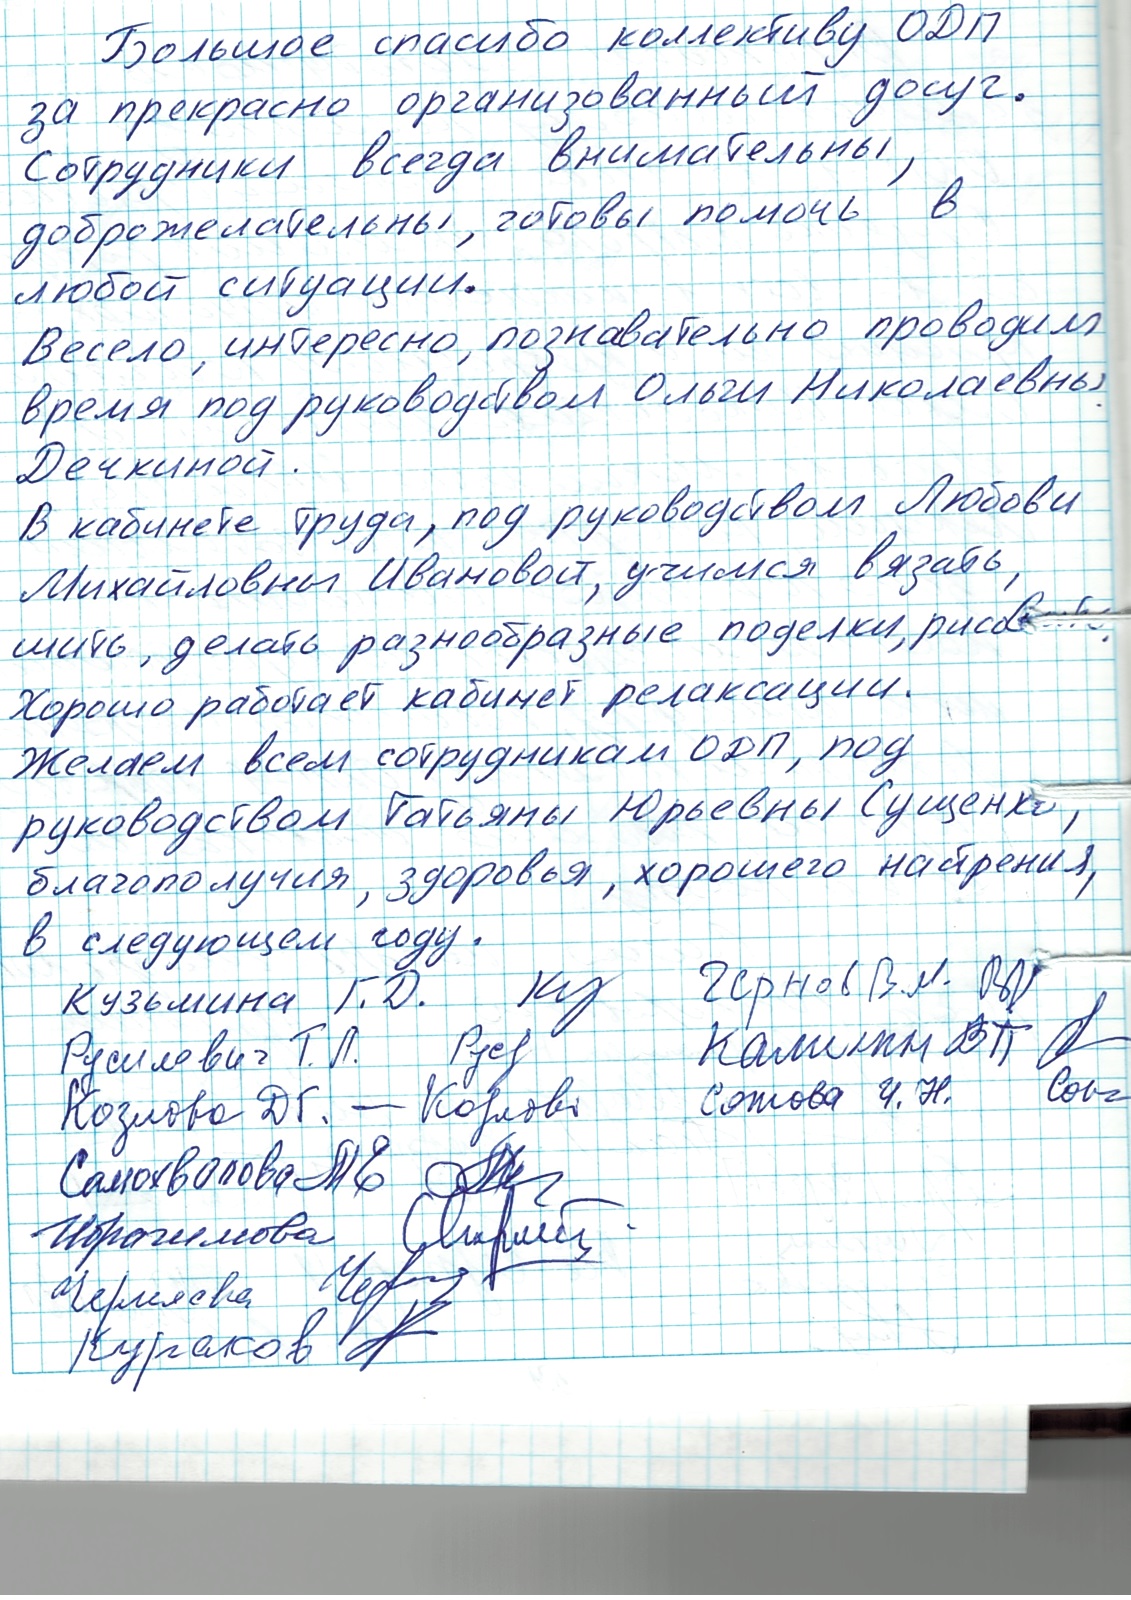 Большое спасибо коллективу ОДП
за прекрасно организованный досуг.
Сотрудники всегда внимательны,
доброжелательны, готовы помочь в
любой ситуации.
Весело, интересно, познавательно проводим
время под руководством Ольги Николаевны
Дечкиной.
В кабинете труда, под руководством Любови
Михайловны Ивановой, учимся вязать,
шить, делать разнообразные поделки,
Хорошо работает кабинет релаксации.
Желаем всем сотрудникам ОДП, под
руководством Татьяны Юрьевны Сущенко,
благополучия, здоровья, хорошего
в следующем году.
Кузьмина Г.Д. Куз Чернов В.М.
Т.Л. Калинин ВП
Козлова Д.Г. — Козлова Н.
Самохвалова МЕ
Ибрагимова